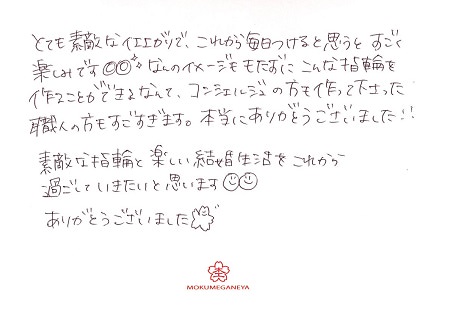 とても素敵な仕上がりで、これから毎日つけると思うとすごく
楽しみです なんのイメージももたずに こんな指輪を
作ることができるなんて、コンシェルジュの方も作って下さった
職人の方もすごすぎます。本当にありがとうございました!!
素敵な指輪と楽しい結婚生活をこれから
過ごしていきたいと思います
ありがとうございました
MOKUMEGANEYA